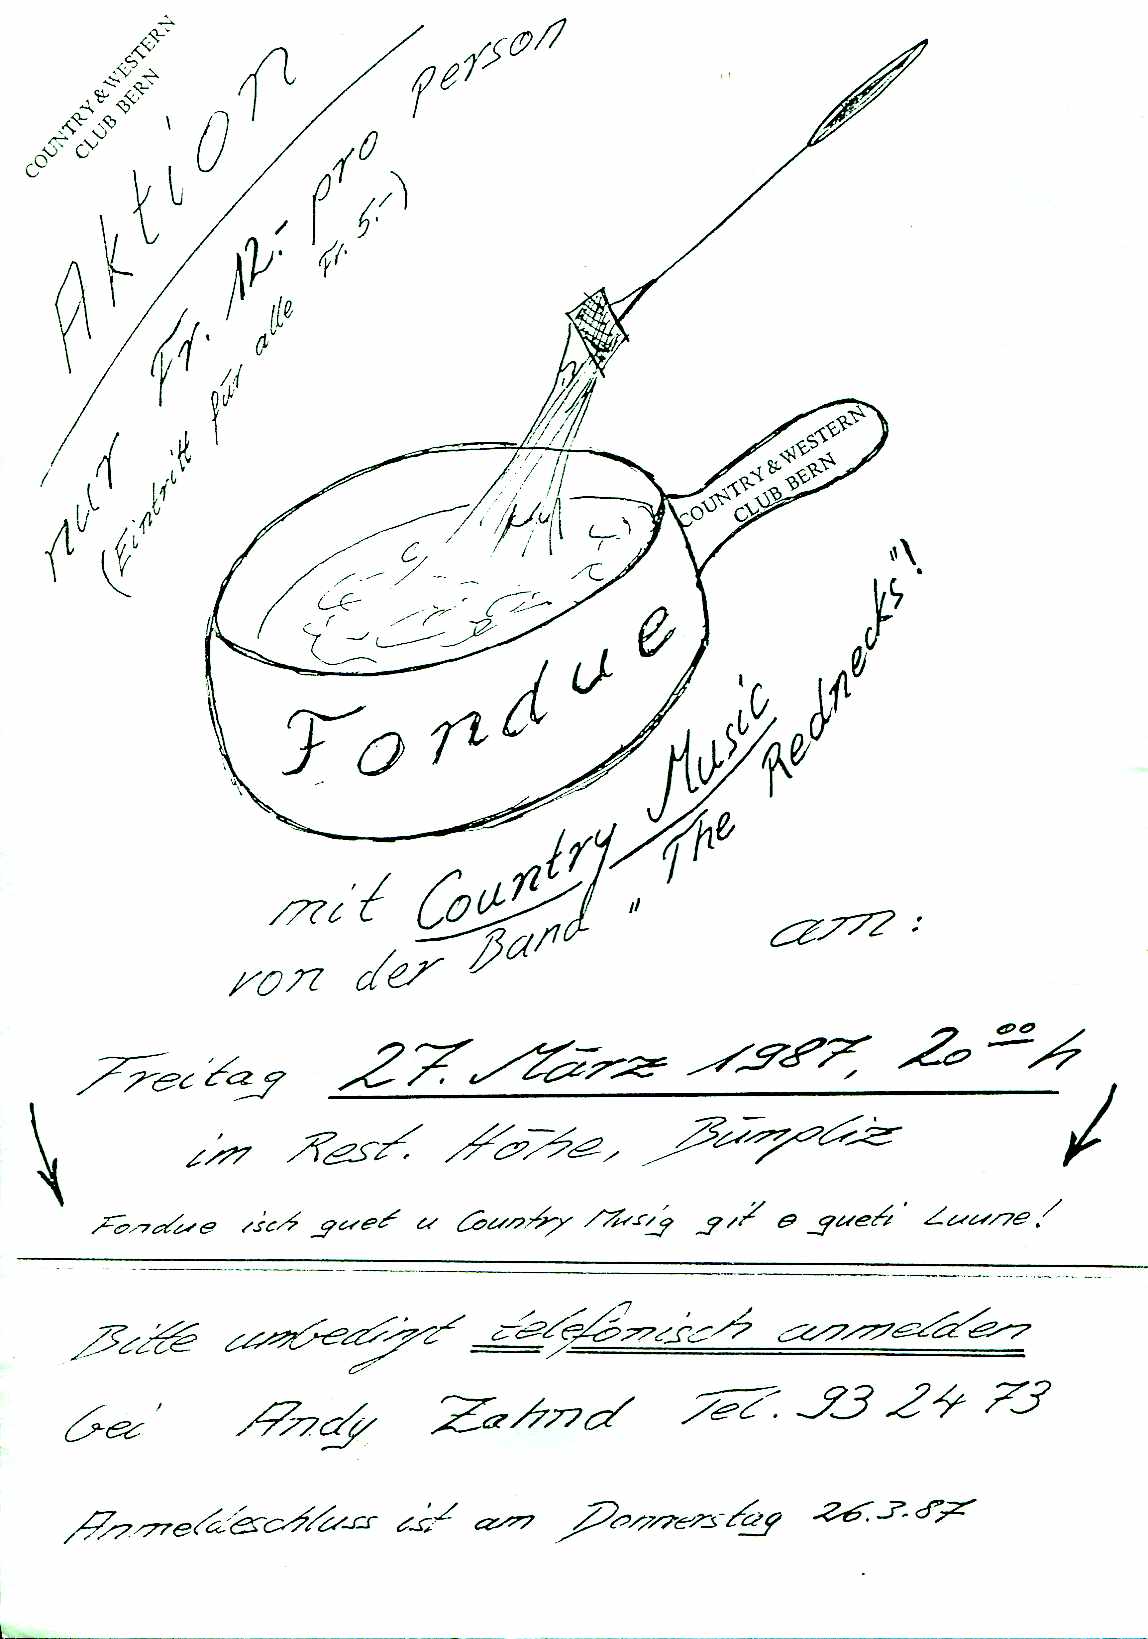 COUNTRY & WESTERN
CLUB BERN
Aktion
nur Fr. 12.- pro Person
(Eintritt für alle Fr. 5.-)
COUNTRY & WESTERN
CLUB BERN
Fondue
mit Country Music
von der Band "The Rednecks"!
am:
Freitag 27. März 1987, 20 00 h
im Rest. Höhe, Bümpliz
Fondue isch guet u Country Musig git e gueti Luune!
Bitte unbedingt telefonisch anmelden
bei Andy Zahnd Tel. 93 24 73
Anmeldeschluss ist am Donnerstag 26.3.87